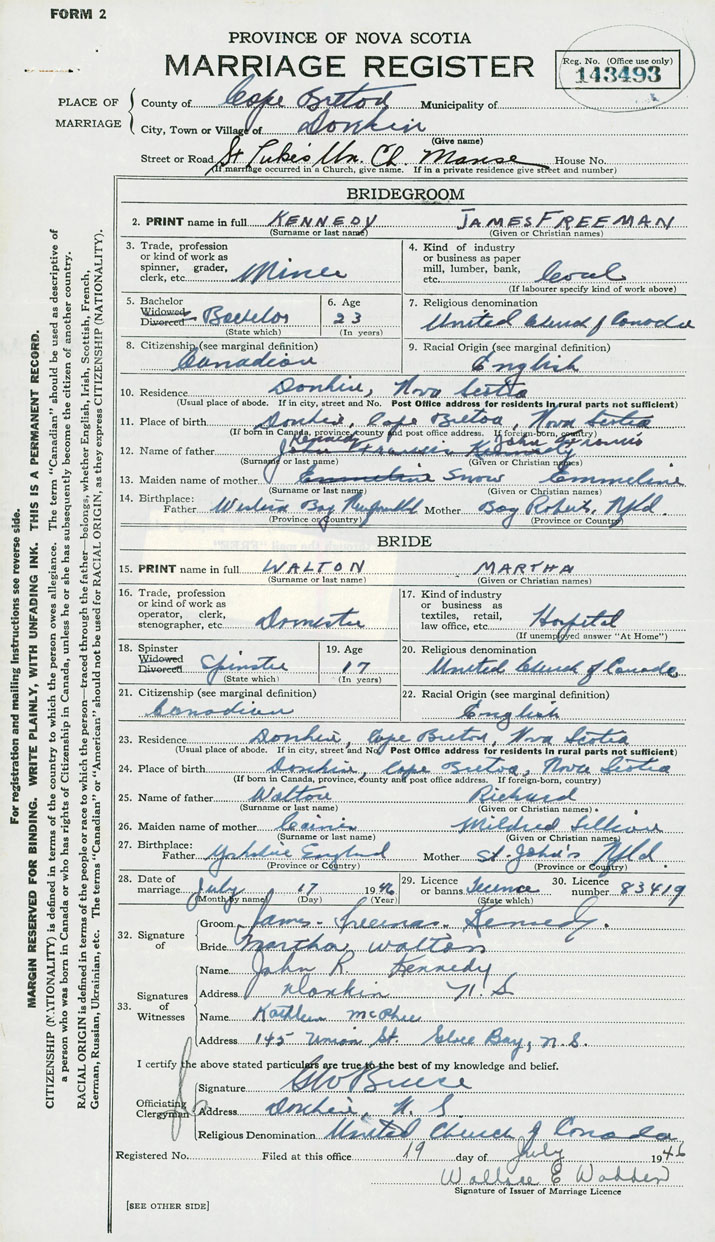 FORM 2
PROVINCE OF NOVA SCOTIA
MARRIAGE REGISTER
Reg. No. (Office use only)
143493
PLACE OF MARRIAGE
County of Cape Breton Municipality of
City, Town or Village of Donkin
(Give name)
Street or Road St Luke's Un. Ch. Manse House No.
(If marriage occurred in a Church, give name. If in a private residence give street and number)
BRIDEGROOM
2. PRINT name in full KENNEDY JAMES FREEMAN
(Surname or last name) (Given or Christian names)
3. Trade, profession or kind of work as spinner, grader, clerk, etc. Miner
4. Kind of industry or business as paper mill, lumber, bank, etc. Coal
(If labourer specify kind of work above)
5. Bachelor Widowed Divorced Bachelor
(State which)
6. Age 23
(In years)
7. Religious denomination
United Church of Canada
8. Citizenship (see marginal definition)
Canadian
9. Racial Origin (see marginal definition)
English
10. Residence Donkin, Nova Scotia
(Usual place of abode. If in city, street and No. Post Office address for residents in rural parts not sufficient)
11. Place of birth Donkin, Cape Breton, Nova Scotia
(If born in Canada, province, county and post office address. If foreign-born, country)
Kennedy John Francis
12. Name of father John Francis Kennedy
(Surname or last name) (Given or Christian names)
13. Maiden name of mother Emmeline Snow Emmeline
(Surname or last name) (Given or Christian names)
14. Birthplace:
Father Western Bay Newfoundld Mother Bay Roberts, Nfld.
(Province or Country) (Province or Country)
BRIDE
15. PRINT name in full WALTON MARTHA
(Surname or last name) (Given or Christian names)
16. Trade, profession or kind of work as operator, clerk, stenographer, etc. Domestic
17. Kind of industry or business as textiles, retail, law office, etc. Hospital
(If unemployed answer "At Home")
18. Spinster Widowed Divorced Spinster
(State which)
19. Age 17
(In years)
20. Religious denomination
United Church of Canada
21. Citizenship (see marginal definition)
Canadian
22. Racial Origin (see marginal definition)
English
23. Residence Donkin, Cape Breton, Nova Scotia
(Usual place of abode. If in city, street and No. Post Office address for residents in rural parts not sufficient)
24. Place of birth Donkin, Cape Breton, Nova Scotia
(If born in Canada, province, county and post office address. If foreign-born, country)
25. Name of father Walton Richard
(Surname or last name) (Given or Christian names)
26. Maiden name of mother Mildred Lillian
(Surname or last name) (Given or Christian names)
27. Birthplace:
Father Yorkshire England Mother St. John's Nfld.
(Province or Country) (Province or Country)
28. Date of marriage July 17 1946
(Month by name) (Day) (Year)
29. Licence or banns License
(State which)
30. Licence number 83419
32. Signature of
Groom James Freeman Kennedy.
Bride Martha Walton
33. Signatures of Witnesses
Name John R. Kennedy
Address Donkin N.S
Name Kathleen McPhee
Address 145 Union St. Glace Bay, N.S.
I certify the above stated particulars are true to the best of my knowledge and belief.
Officiating Clergyman
Signature
Address Donkin, N.S.
Religious Denomination United Church of Canada
Registered No. Filed at this office 19 day of July 1946
Wallace E Wadden
Signature of Issuer of Marriage Licence
[SEE OTHER SIDE]
For registration and mailing instructions see reverse side.
MARGIN RESERVED FOR BINDING. WRITE PLAINLY, WITH UNFADING INK. THIS IS A PERMANENT RECORD.
CITIZENSHIP (NATIONALITY) is defined in terms of the country to which the person owes allegiance. The term "Canadian" should be used as descriptive of
a person who was born in Canada or who has rights of Citizenship in Canada, unless he or she has subsequently become the citizen of another country.
RACIAL ORIGIN is defined in terms of the people or race to which the person—traced through the father—belongs, whether English, Irish, Scottish, French,
German, Russian, Ukrainian, etc. The terms "Canadian" or "American" should not be used for RACIAL ORIGIN, as they express CITIZENSHIP (NATIONALITY).